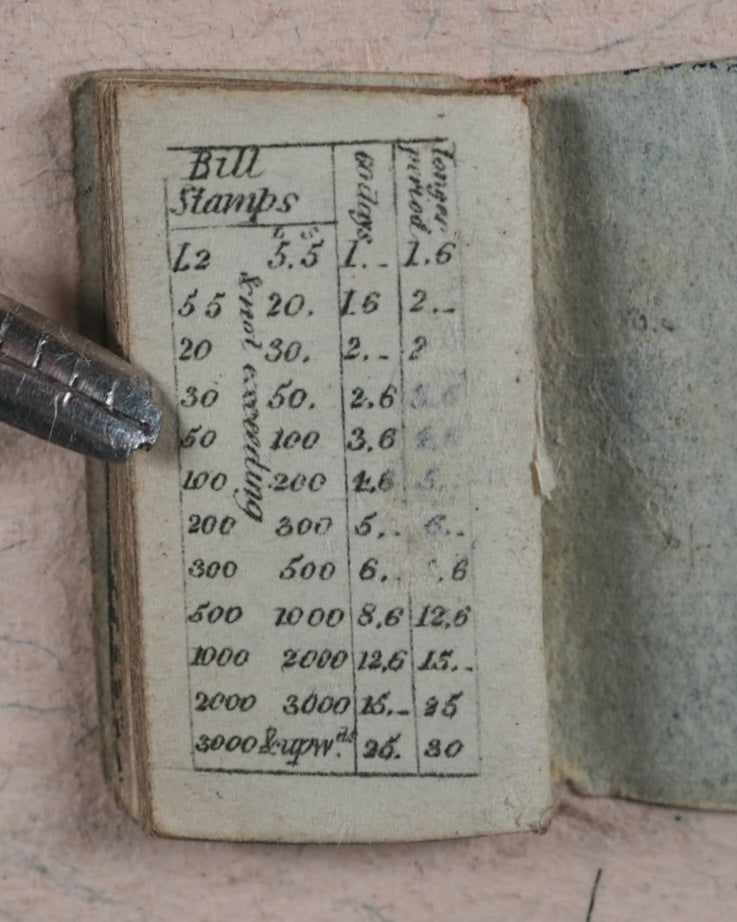 Bill
Stamps
60 days
longer period
& not exceeding
L2 5.5 1.. 1.6
55 20. 1.6 2..
20 30. 2.. 2
30 50. 2.6
50 100 3.6
100 200 4.6 5..
200 300 5.. 6..
300 500 6.. .6
500 1000 8,6 12,6
1000 2000 12,6 15..
2000 3000 15.. 25
3000 & upw.ds 25. 30